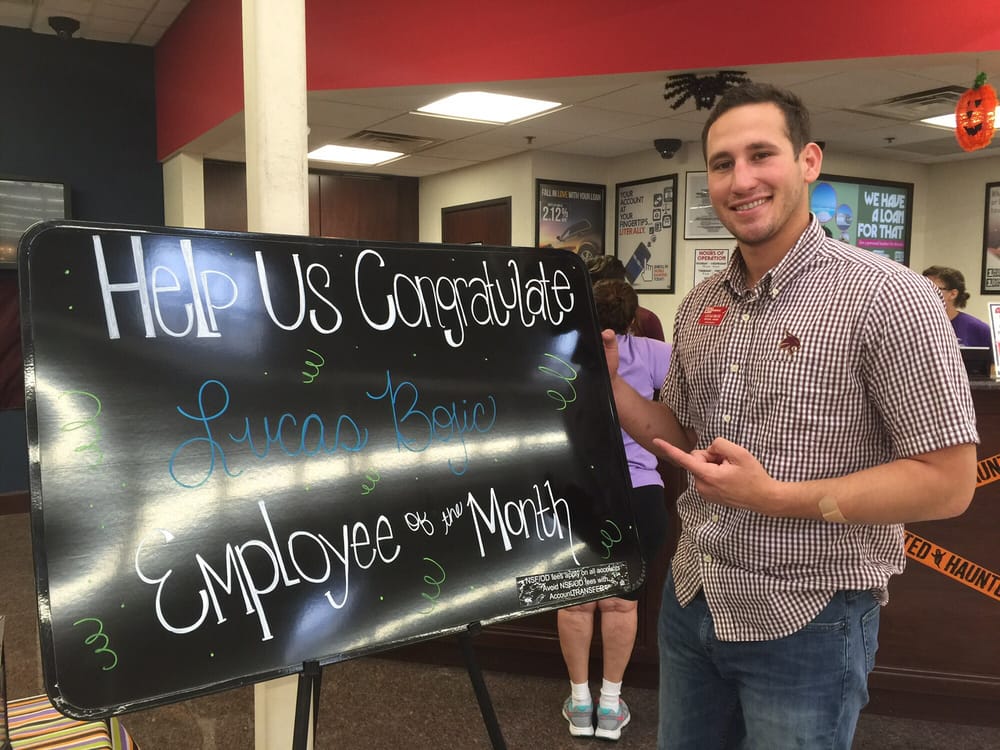 Help Us Congratulate
Lucas Bojic
Employee of the Month
NSF/OD fees apply on all accounts
Avoid NSF/OD fees with
AccountTRANSFER
FALL IN LOVE WITH YOUR LOAN
2.12%
YOUR
ACCOUNT
AT YOUR
FINGERTIPS...
LITERALLY.
HOURS OF
OPERATION
WE HAVE
A LOAN
FOR THAT
HAUNTED
HAUNT